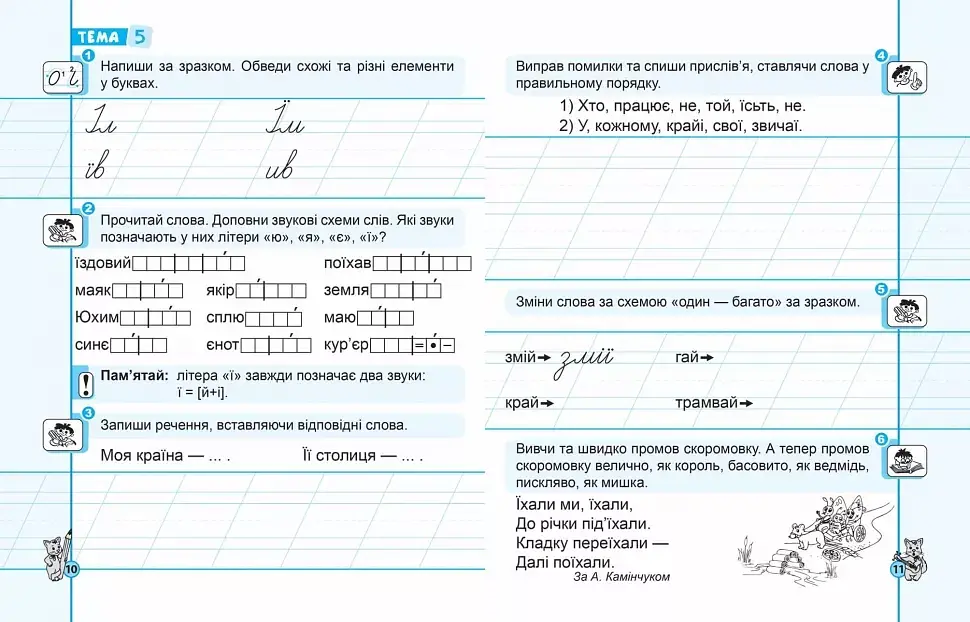 ТЕМА 5
1
Напиши за зразком. Обведи схожі та різні елементи
у буквах.
Їл Їм
їв ив
2
Прочитай слова. Доповни звукові схеми слів. Які звуки
позначають у них літери «ю», «я», «є», «ї»?
їздовий поїхав
маяк якір земля
Юхим сплю маю
синє єнот кур’єр = • –
! Пам’ятай: літера «ї» завжди позначає два звуки:
ї = [й+і].
3
Запиши речення, вставляючи відповідні слова.
Моя країна — ... . Її столиця — ... .
10
4
Виправ помилки та спиши прислів’я, ставлячи слова у
правильному порядку.
1) Хто, працює, не, той, їсьть, не.
2) У, кожному, крайі, свої, звичаї.
5
Зміни слова за схемою «один — багато» за зразком.
змій→ змії гай→
край→ трамвай→
6
Вивчи та швидко промов скоромовку. А тепер промов
скоромовку велично, як король, басовито, як ведмідь,
пискляво, як мишка.
Їхали ми, їхали,
До річки під’їхали.
Кладку переїхали —
Далі поїхали.
За А. Камінчуком
11